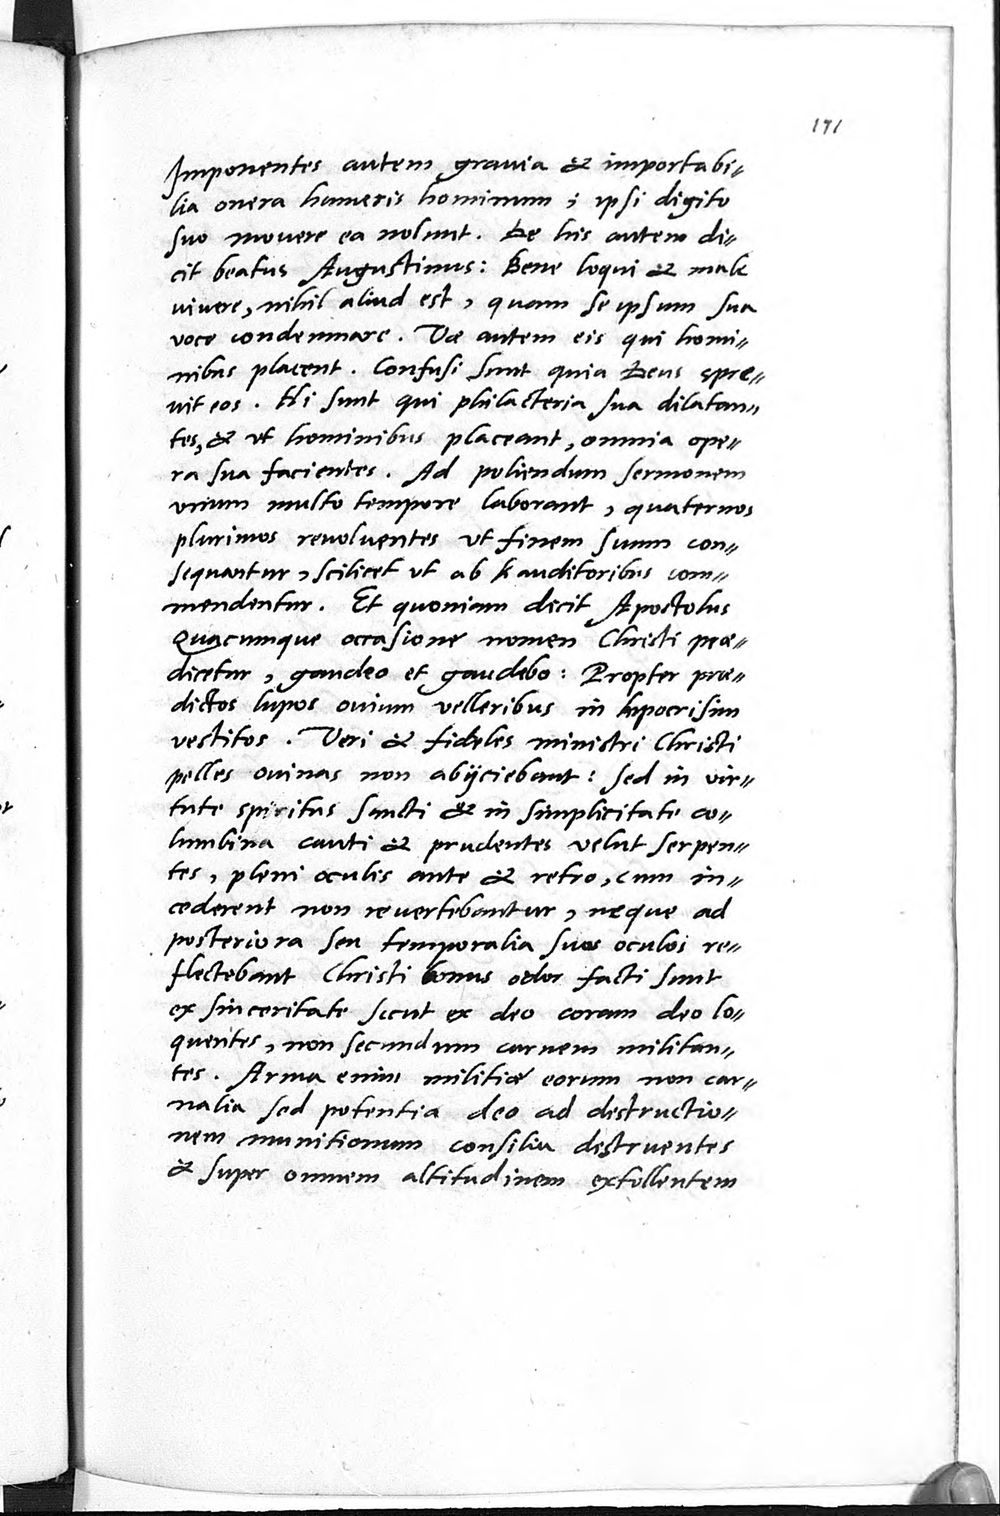 171
Imponentes autem gravia & importabi〃
lia onera humeris hominum ; ipsi digito
suo movere ea nolunt. De his autem di〃
cit beatus Augustinus: Bene loqui & male
vivere, nihil aliud est, quam se ipsum sua
voce condemnare. Væ autem eis qui homi〃
nibus placent. Confusi sunt quia Deus spre〃
vit eos. Hi sunt qui philacteria sua dilatan〃
tes, & ut hominibus placeant, omnia ope〃
ra sua facientes. Ad poliendum sermonem
unum multo tempore laborant, quaternos
plurimos revolventes ut finem suum con〃
sequantur, scilicet ut ab auditoribus com〃
mendentur. Et quoniam dicit Apostolus
Quacumque occasione nomen Christi præ〃
dicetur, gaudeo et gaudebo: Propter præ〃
dictos lupos ovium velleribus in hipocrisim
vestitos. Veri & fideles ministri Christi
pelles ovinas non abijciebant: sed in vir〃
tute spiritus sancti & in simplicitate co〃
lumbina cauti & prudentes velut serpen〃
tes, pleni oculis ante & retro, cum in〃
cederent non revertebantur, neque ad
posteriora seu temporalia suos oculos re〃
flectebant Christi bonus odor facti sunt
ex sinceritate sicut ex deo coram deo lo〃
quentes, non secundum carnem militan〃
tes. Arma enim militiæ eorum non car〃
nalia sed potentia deo ad destructio〃
nem munitionum consilia destruentes
& super omnem altitudinem extollentem